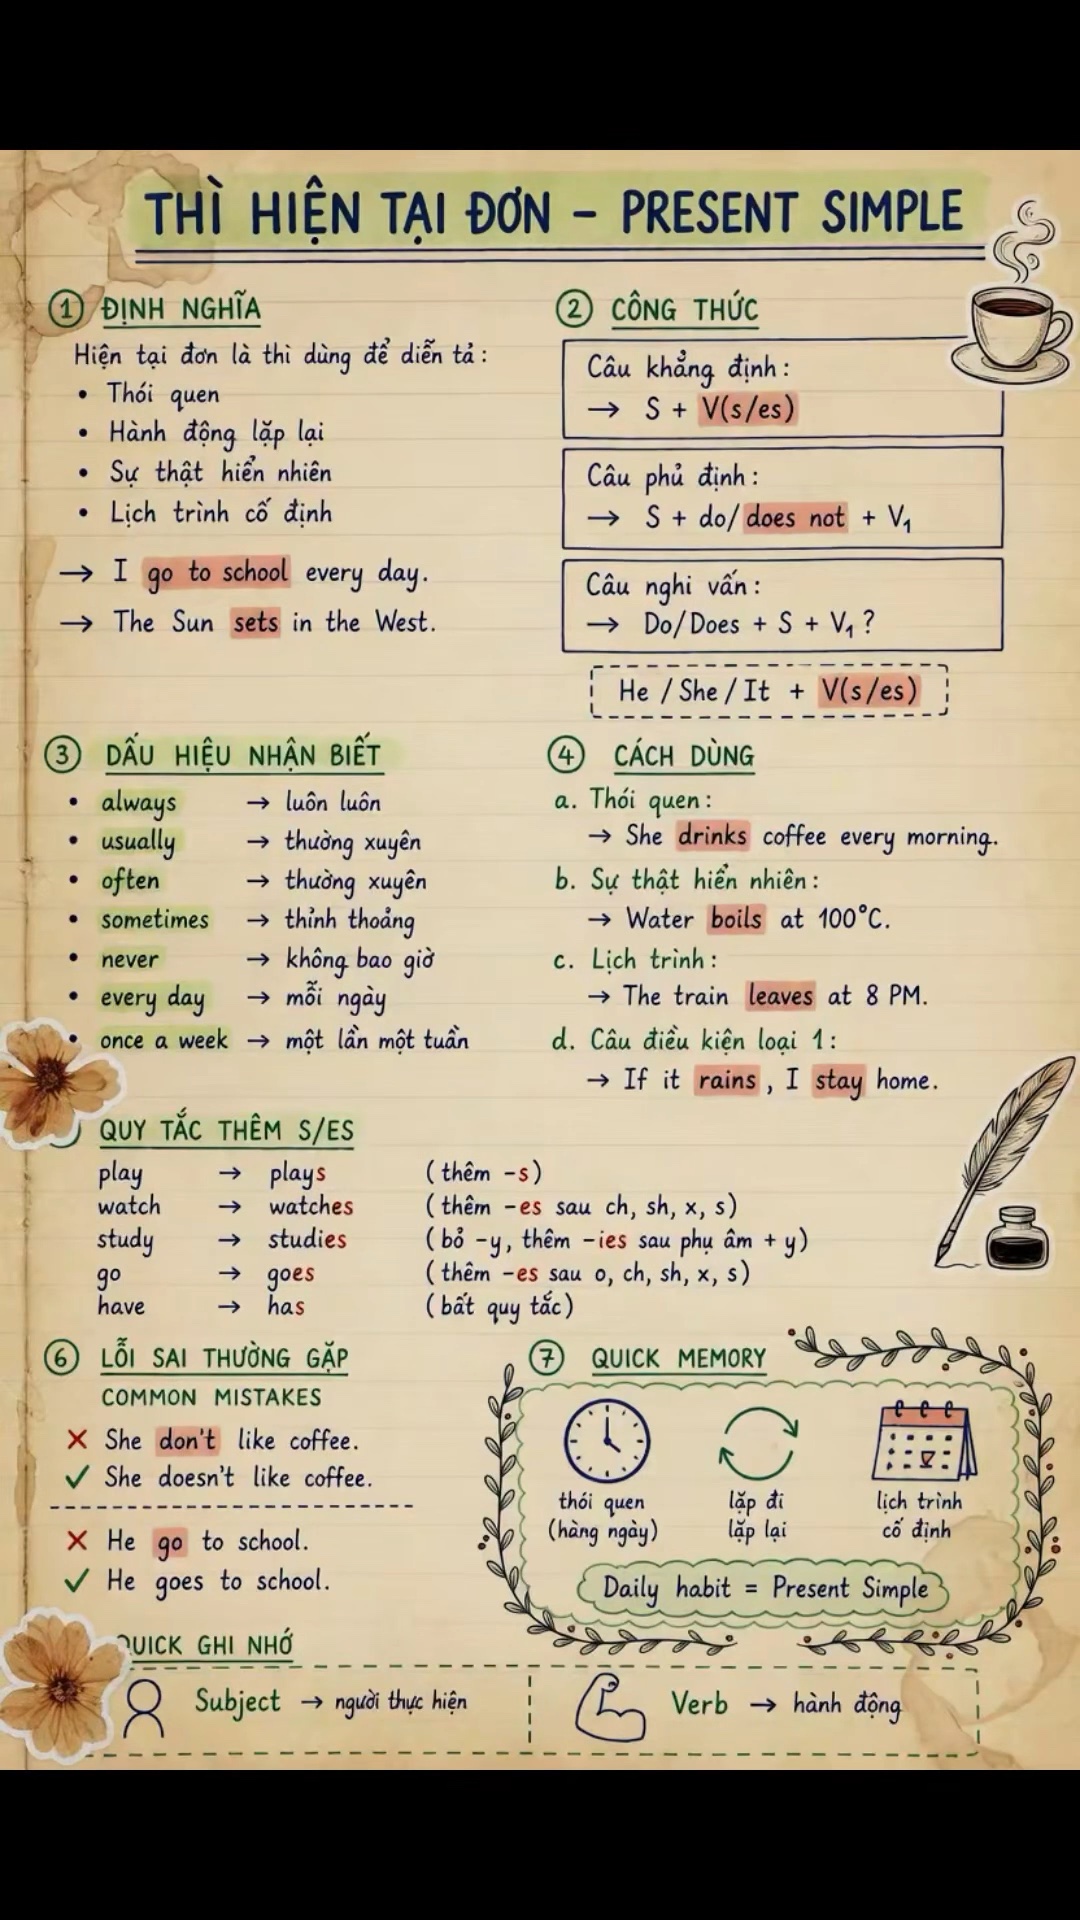 THÌ HIỆN TẠI ĐƠN – PRESENT SIMPLE
1 ĐỊNH NGHĨA
Hiện tại đơn là thì dùng để diễn tả :
• Thói quen
• Hành động lặp lại
• Sự thật hiển nhiên
• Lịch trình cố định
→ I go to school every day.
→ The Sun sets in the West.
2 CÔNG THỨC
Câu khẳng định :
→ S + V(s/es)
Câu phủ định :
→ S + do/does not + V₁
Câu nghi vấn :
→ Do/Does + S + V₁ ?
He / She / It + V(s/es)
3 DẤU HIỆU NHẬN BIẾT
• always → luôn luôn
• usually → thường xuyên
• often → thường xuyên
• sometimes → thỉnh thoảng
• never → không bao giờ
• every day → mỗi ngày
• once a week → một lần một tuần
4 CÁCH DÙNG
a. Thói quen :
→ She drinks coffee every morning.
b. Sự thật hiển nhiên :
→ Water boils at 100°C.
c. Lịch trình :
→ The train leaves at 8 PM.
d. Câu điều kiện loại 1 :
→ If it rains , I stay home.
QUY TẮC THÊM S/ES
play → plays (thêm -s)
watch → watches (thêm -es sau ch, sh, x, s)
study → studies (bỏ -y, thêm -ies sau phụ âm + y)
go → goes (thêm -es sau o, ch, sh, x, s)
have → has (bất quy tắc)
6 LỖI SAI THƯỜNG GẶP
COMMON MISTAKES
✗ She don't like coffee.
✓ She doesn't like coffee.
✗ He go to school.
✓ He goes to school.
7 QUICK MEMORY
thói quen
(hàng ngày)
lặp đi
lặp lại
lịch trình
cố định
Daily habit = Present Simple
QUICK GHI NHỚ
Subject → người thực hiện
Verb → hành động